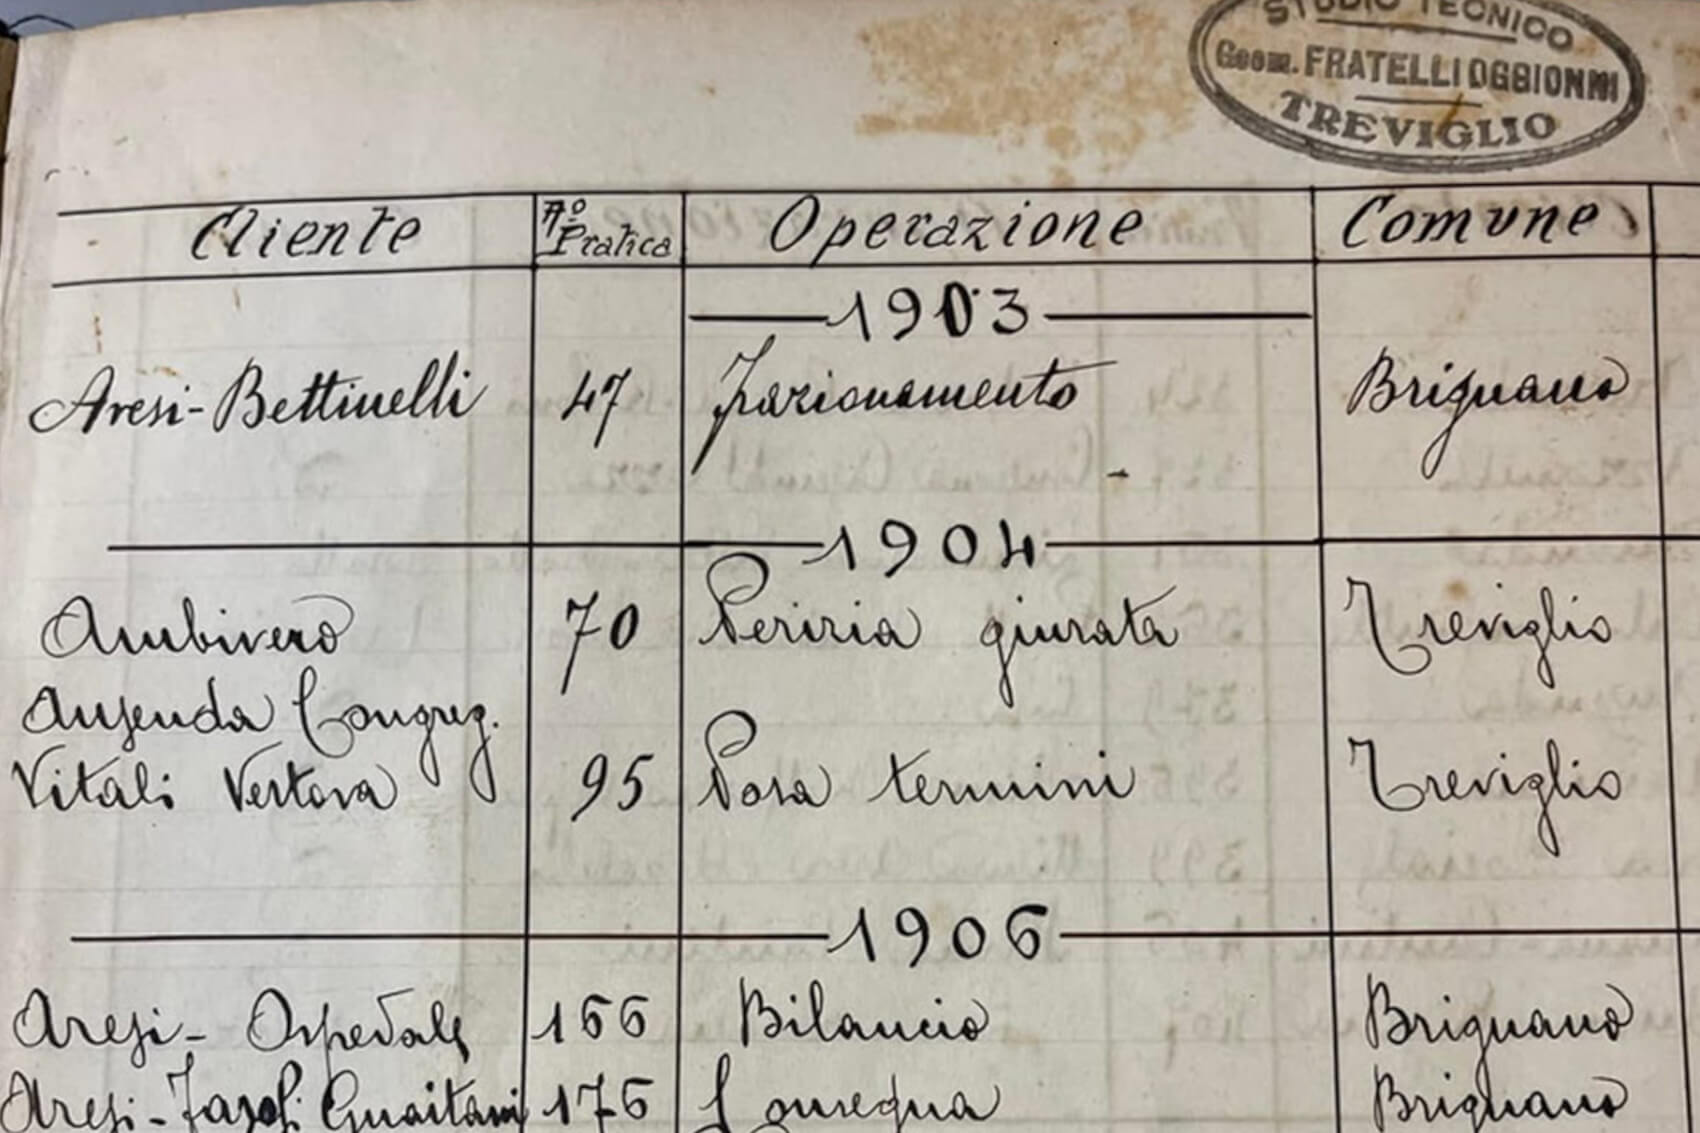 STUDIO TECNICO
Geom. FRATELLI OGGIONNI
TREVIGLIO
Cliente No. Pratica Operazione Comune
1903
Aresi-Bettinelli 47 frazionamento Brignano
1904
Ambivero 70 Perizia giurata Treviglio
Ausenda Congreg.
Vitali Vertova 95 Posa termini Treviglio
1906
Aresi- Ospedale 166 Bilancio Brignano
Aresi- Guaitani 176 Consegna Brignano